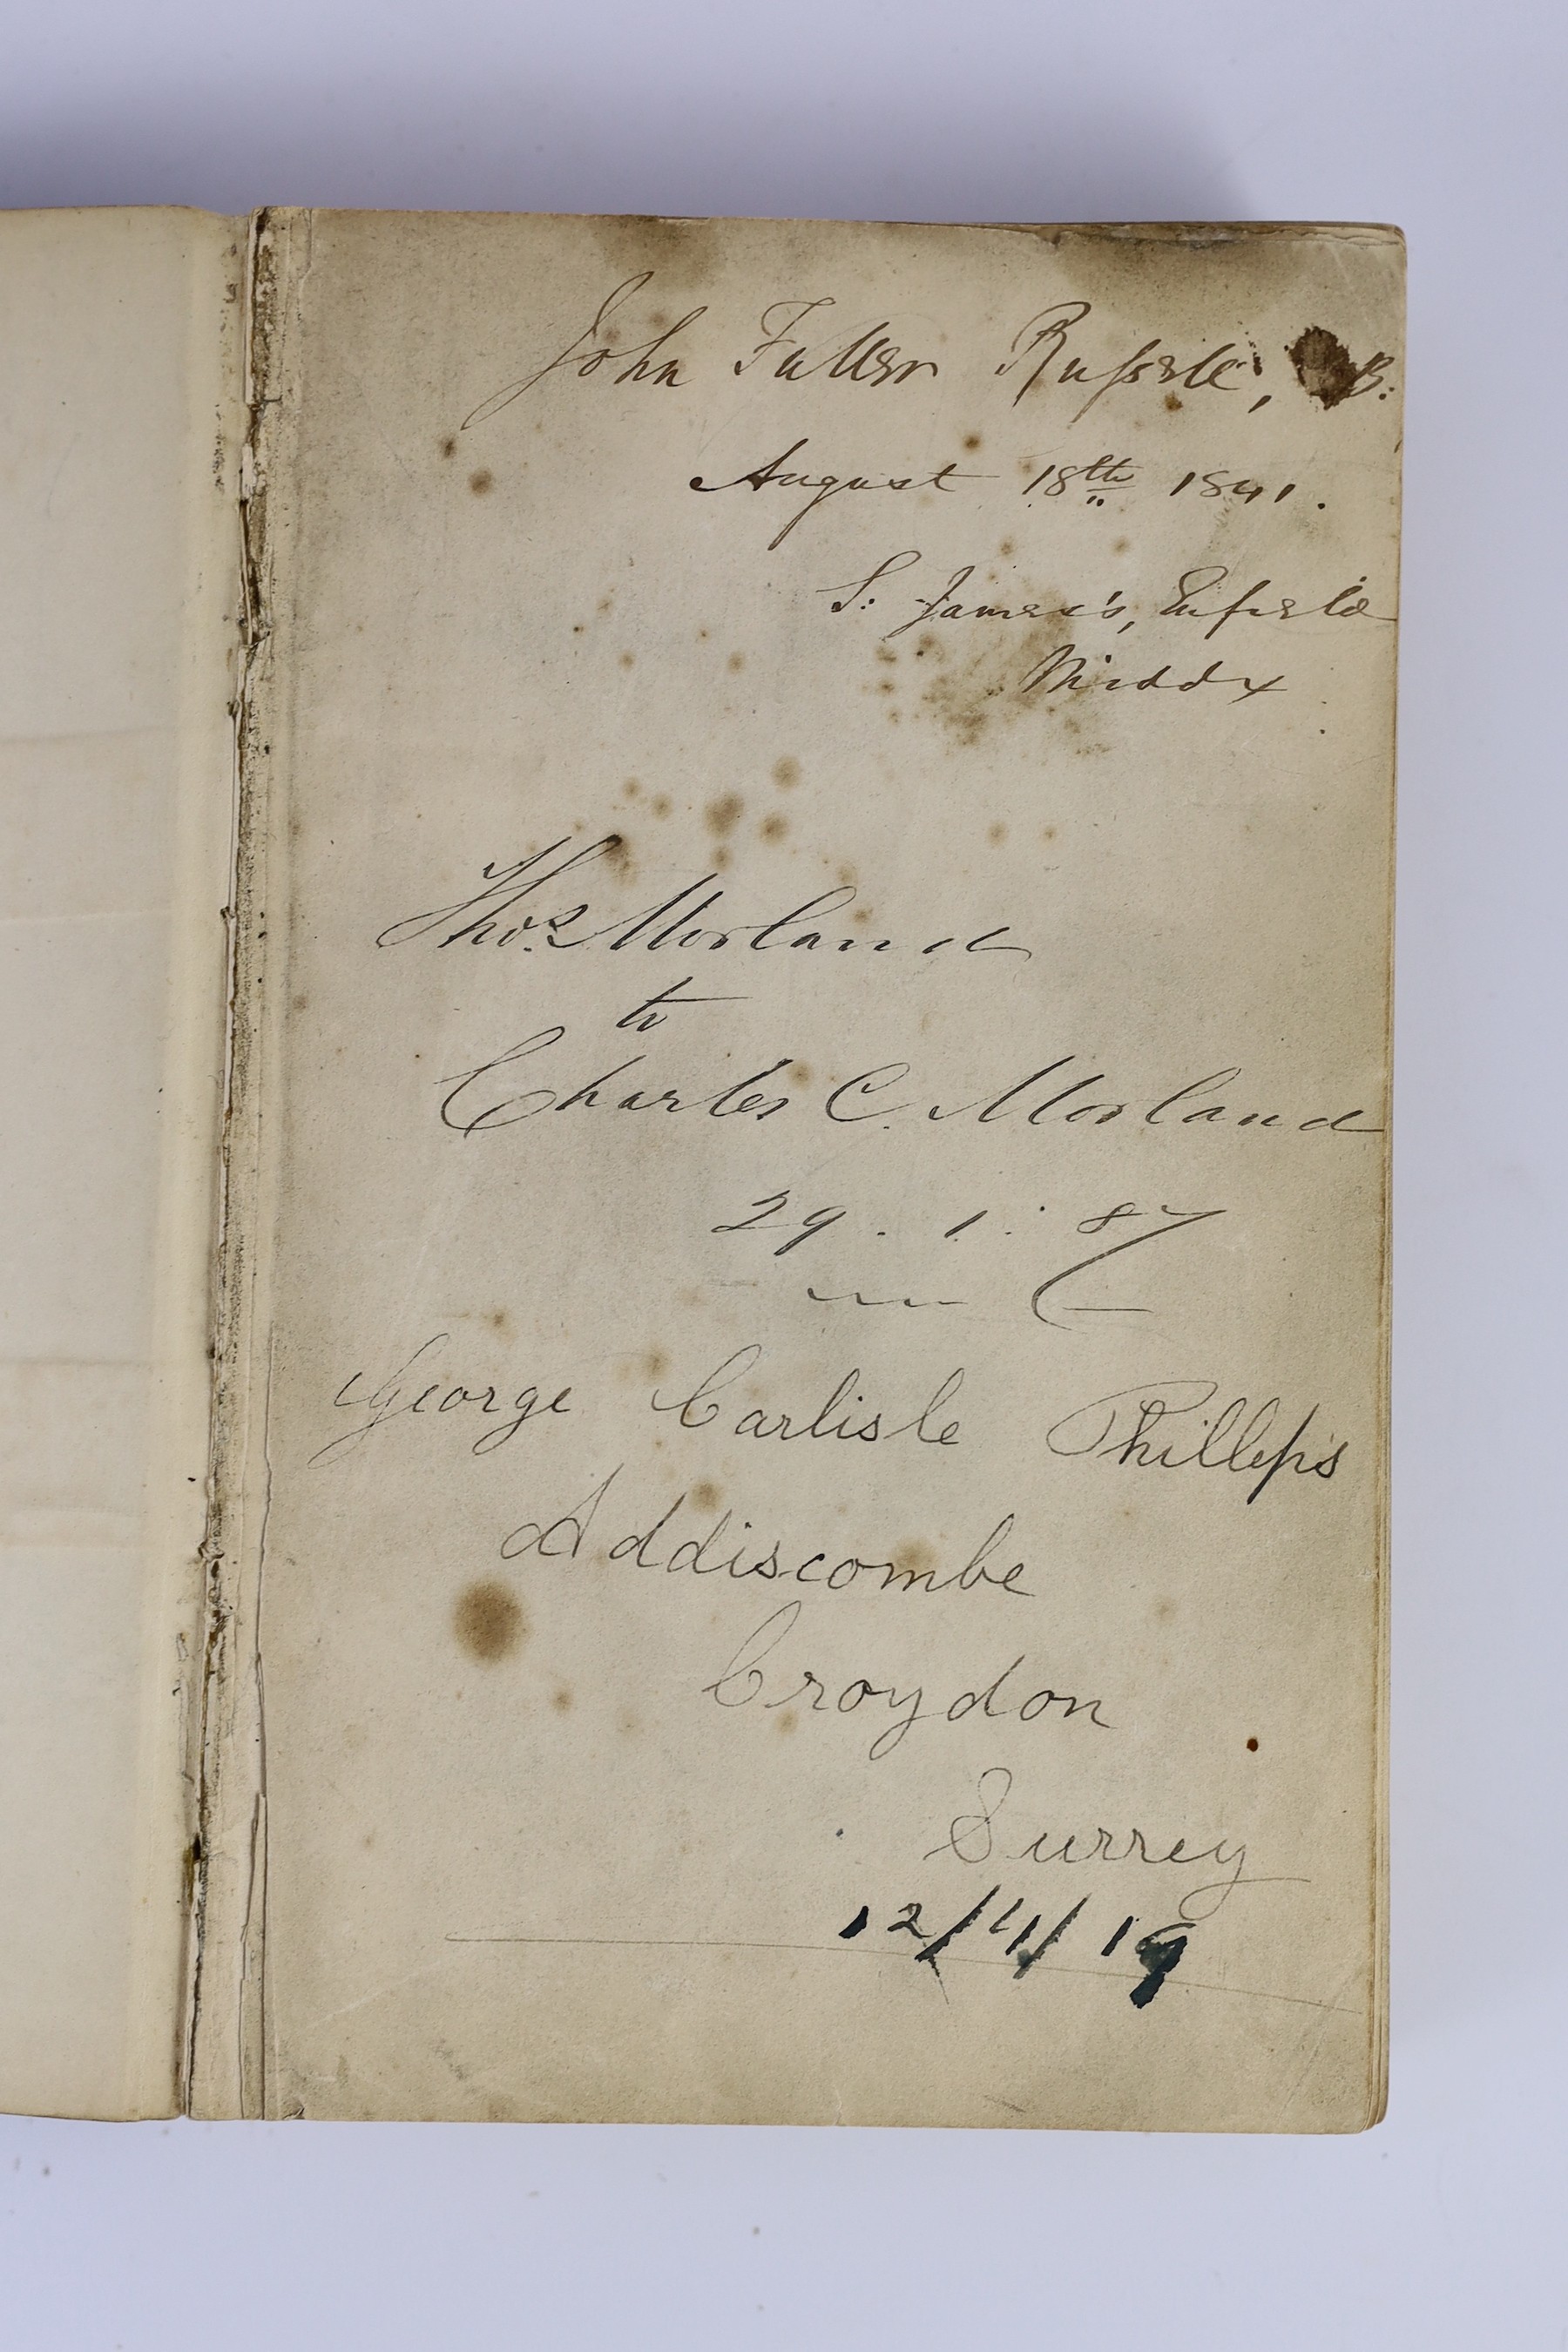 John Fuller Russell, B:
August 18th 1841.
S: James's, Enfield
Middx
Thos. Morland
to
Charles C. Morland
29 . 1 : 87
George Carlisle Phillips
Addiscombe
Croydon
Surrey
12/4/19